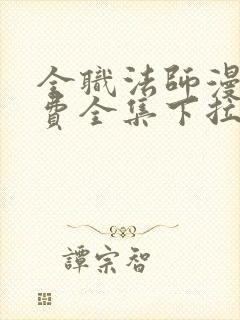 全職法師漫
費全集下拉
譚宗智